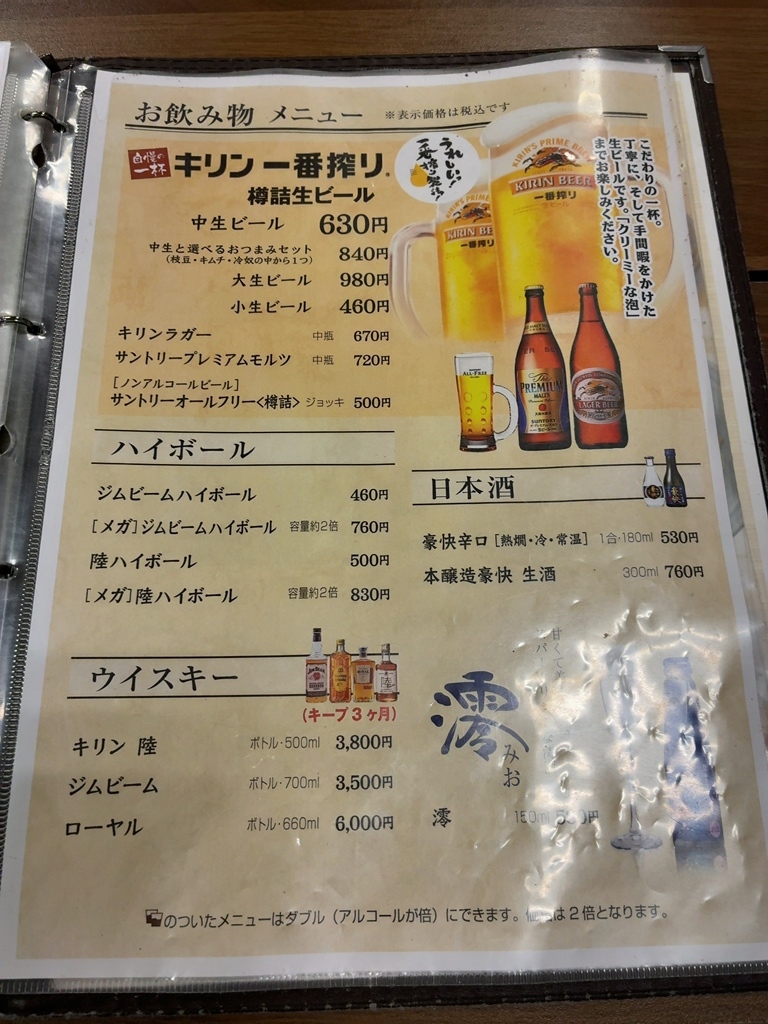 お飲み物 メニュー ※表示価格は税込です
自慢の一杯 キリン一番搾り
樽詰生ビール
うれしい！
中生ビール 630円
中生と選べるおつまみセット 840円
（枝豆・キムチ・冷奴の中から１つ）
大生ビール 980円
小生ビール 460円
キリンラガー 中瓶 670円
サントリープレミアムモルツ 中瓶 720円
［ノンアルコールビール］
サントリーオールフリー〈樽詰〉 ジョッキ 500円
こだわりの一杯。
丁寧に、そして手間暇をかけた
生ビールです。「クリーミーな泡」
までお楽しみください。
KIRIN'S PRIME BREW
KIRIN BEER
一番搾り
KIRIN BEER
一番搾り
ALL-FREE
The PREMIUM MALT'S
SUNTORY
LAGER BEER
ハイボール
ジムビームハイボール 460円
［メガ］ジムビームハイボール 容量約2倍 760円
陸ハイボール 500円
［メガ］陸ハイボール 容量約2倍 830円
日本酒
豪快
豪快辛口［熱燗・冷・常温］ 1合・180ml 530円
本醸造豪快 生酒 300ml 760円
ウイスキー
（キープ３ヶ月）
キリン 陸 ボトル・500ml 3,800円
ジムビーム ボトル・700ml 3,500円
ローヤル ボトル・660ml 6,000円
澪
みお
澪 150ml
のついたメニューはダブル（アルコールが倍）にできます。価格は２倍となります。